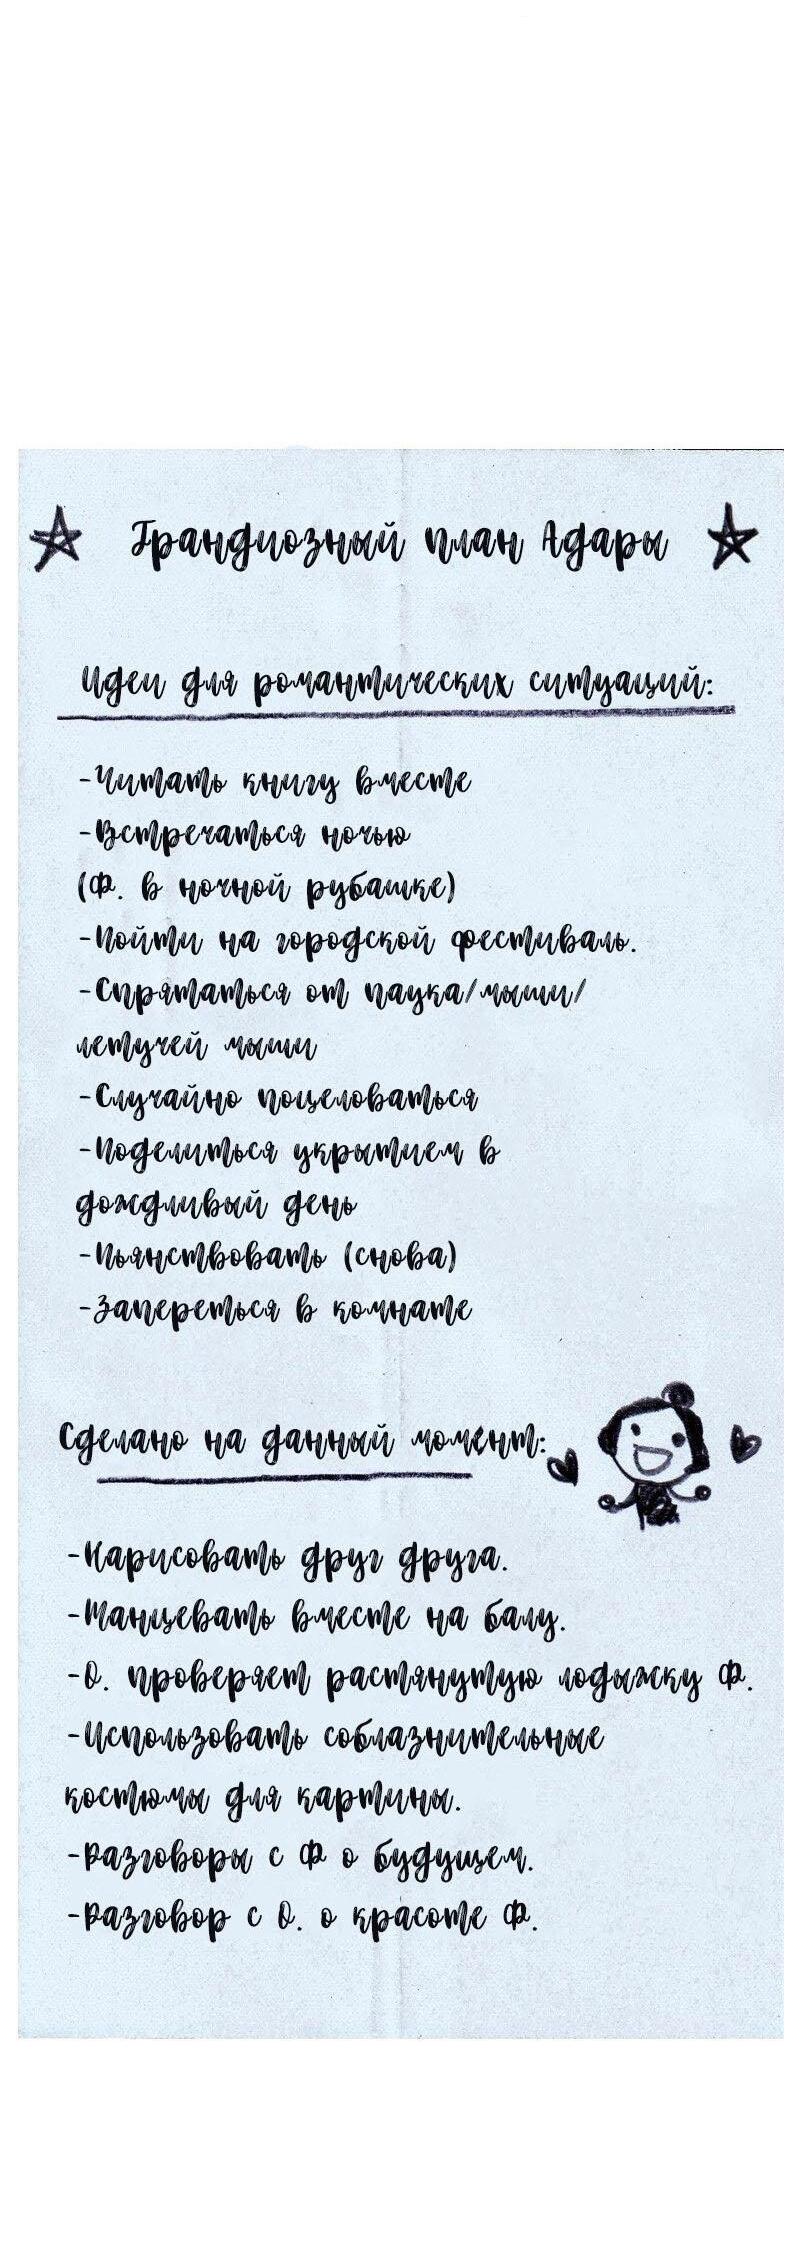 Грандиозный план Адары
Идеи для романтических ситуаций:
-Читать книгу вместе
-Встречаться ночью
(Ф. в ночной рубашке)
-Пойти на городской фестиваль.
-Спрятаться от паука/мыши/
летучей мыши
-Случайно поцеловаться
-Поделиться укрытием в
дождливый день
-Пьянствовать (снова)
-Запереться в комнате
Сделано на данный момент:
-Нарисовать друг друга.
-Танцевать вместе на балу.
-О. проверяет растянутую лодыжку Ф.
-Использовать соблазнительные
костюмы для картины.
-Разговоры с Ф о будущем.
-Разговор с О. о красоте Ф.